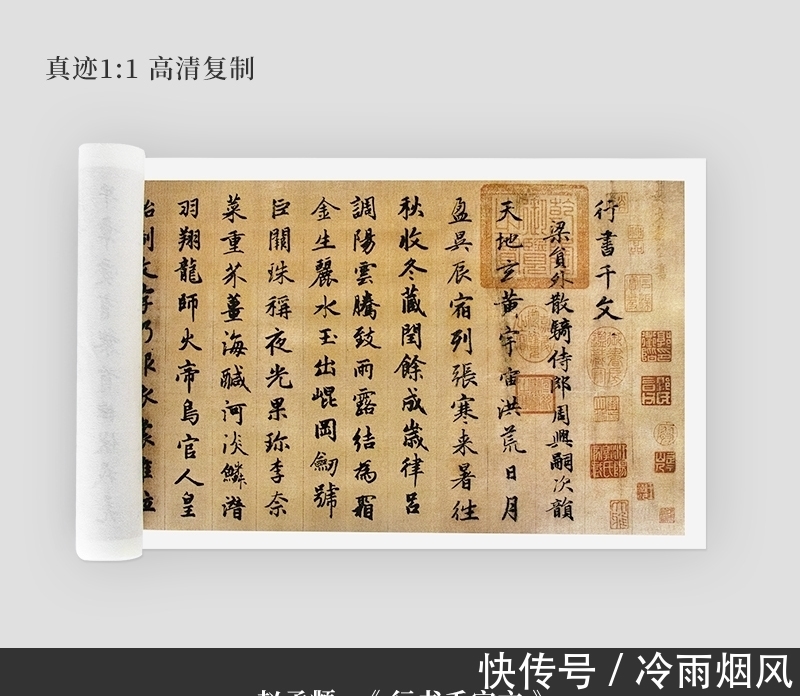 真迹1:1 高清复制
行書千文
梁貟外散騎侍郎周興嗣次韻
天地玄黃宇宙洪荒日月
盈昃辰宿列張寒来暑往
秋收冬藏閏餘成歲律呂
調陽雲騰致雨露結為霜
金生麗水玉出崐岡劒號
巨闕珠稱夜光果珎李柰
菜重芥薑海鹹河淡鱗潜
羽翔龍師火帝鳥官人皇
始制文字乃服衣裳推位
快传号 / 冷雨烟风
赵孟頫 《行书千字文》